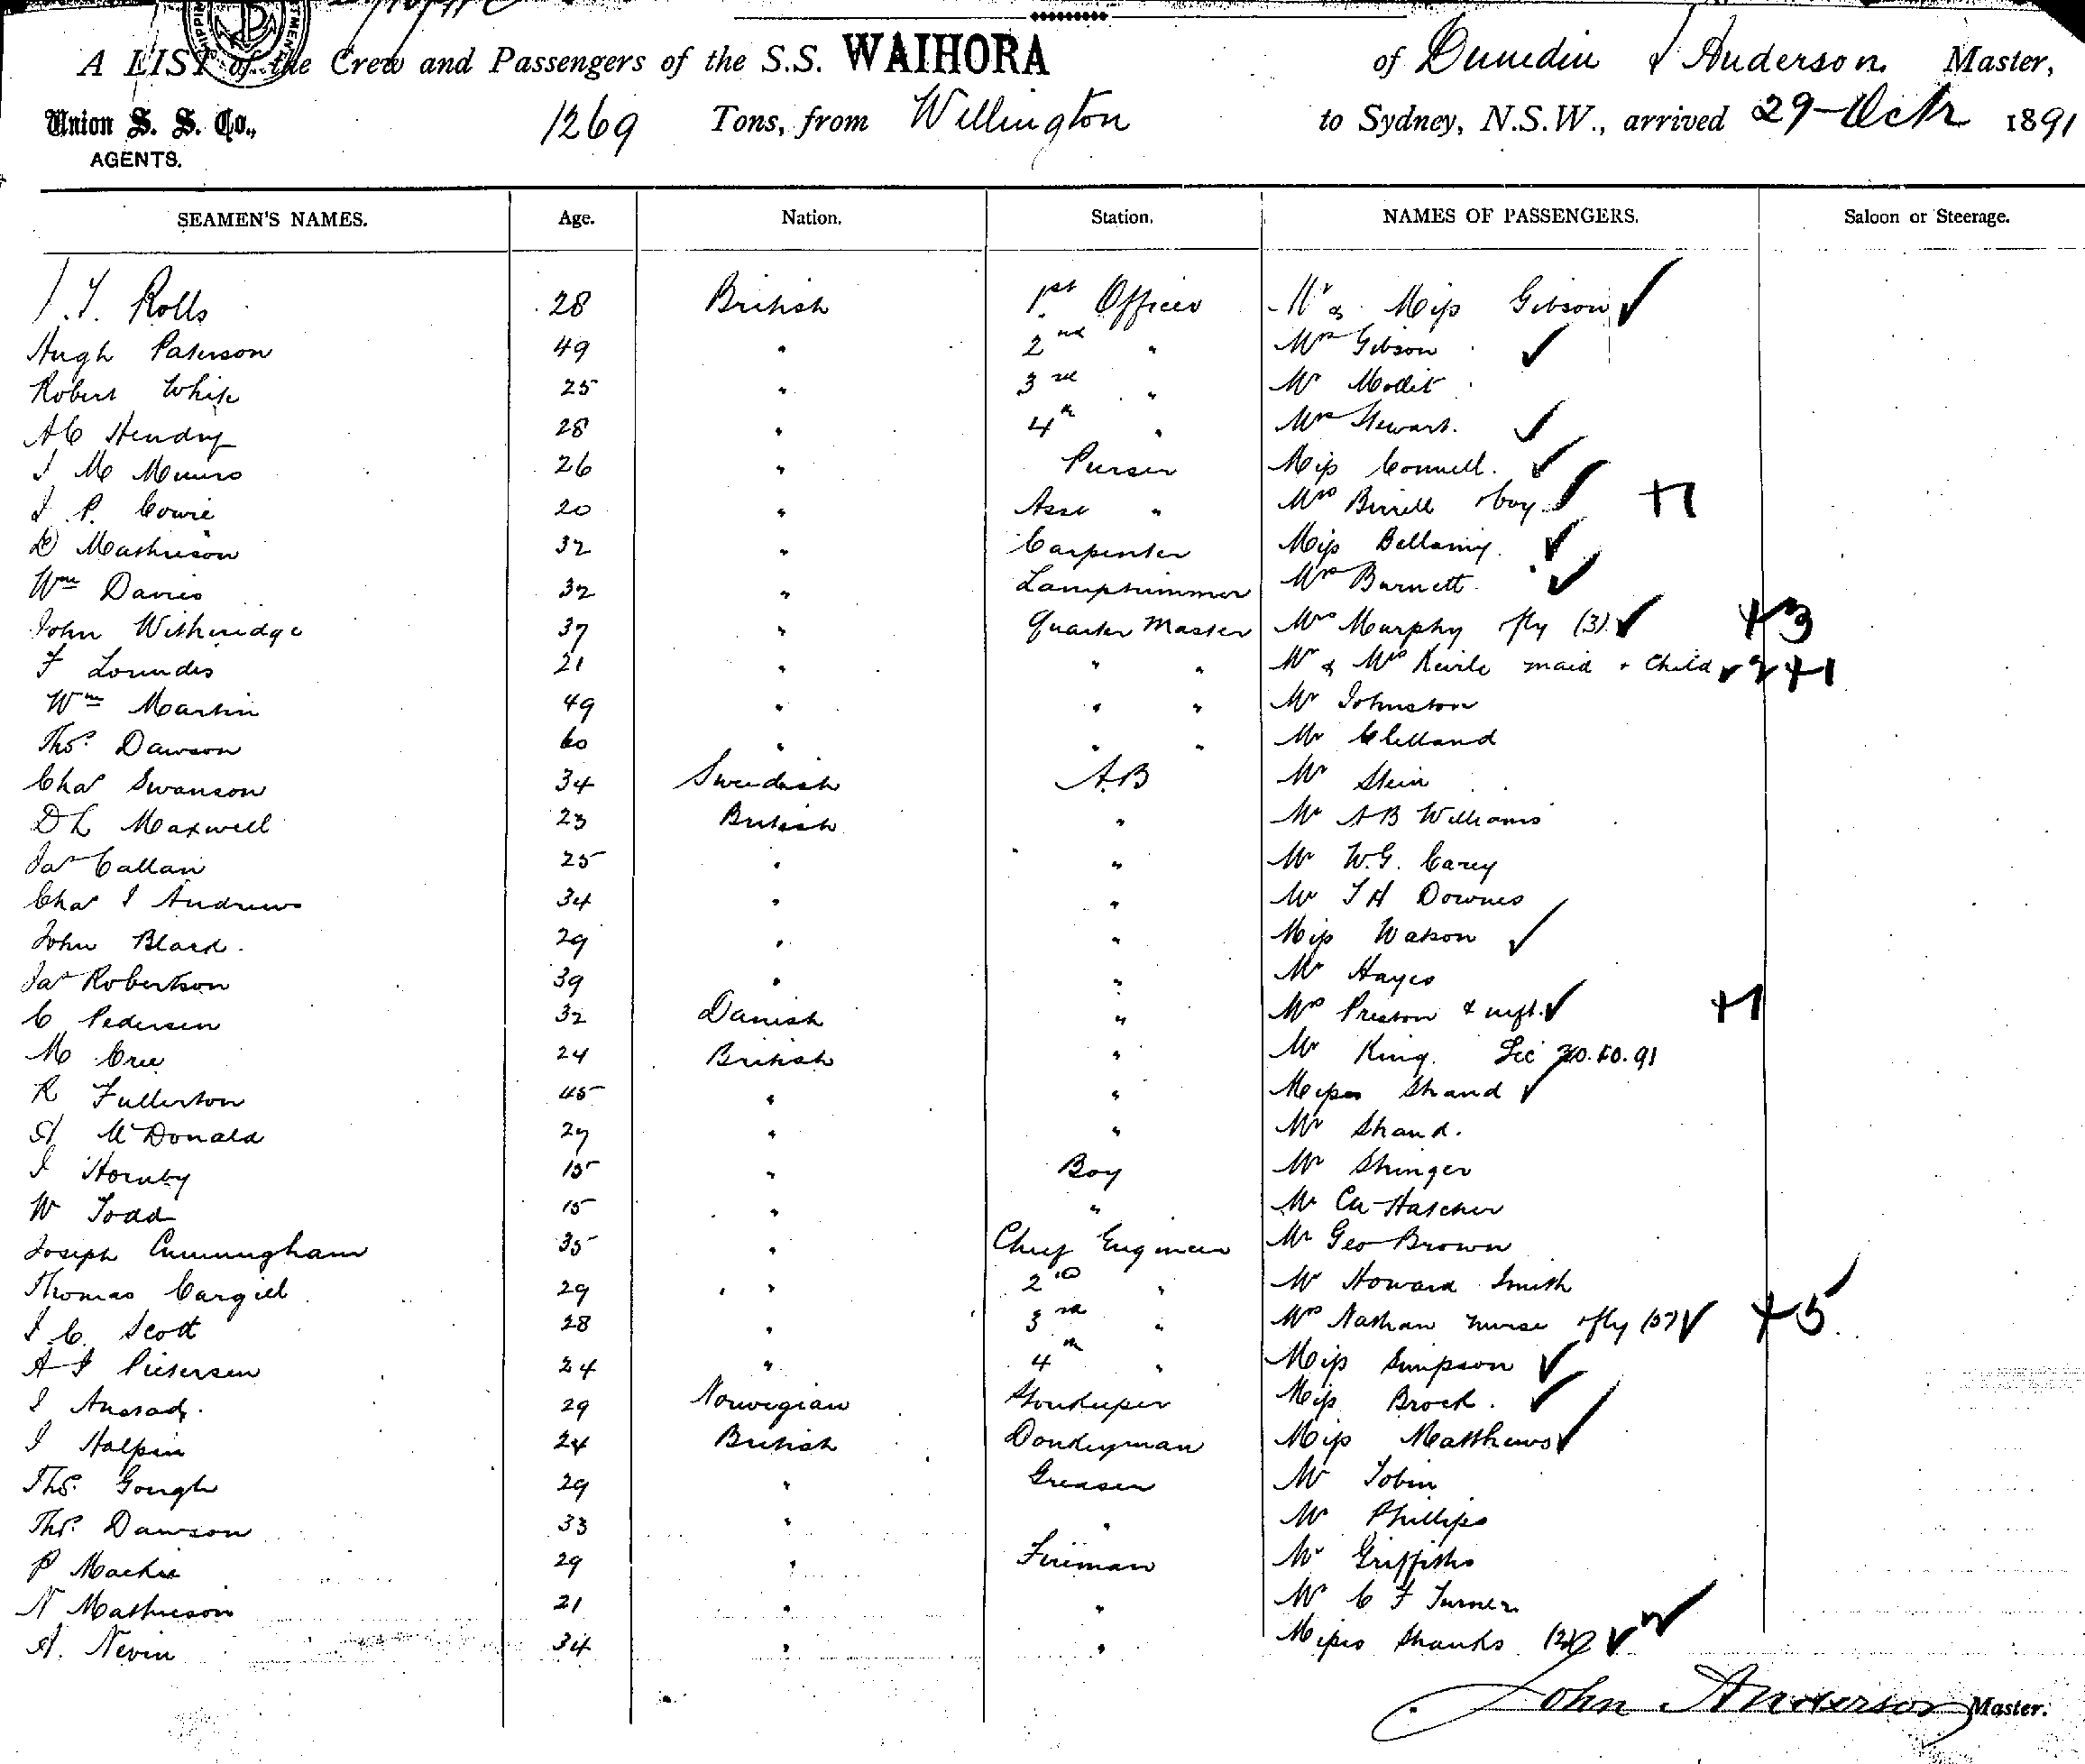 A LIST of the Crew and Passengers of the S.S. WAIHORA of Dunedin J Anderson Master,
Union S. S. Co., 1269 Tons, from Wellington to Sydney, N.S.W., arrived 29 Octr 1891
AGENTS.
SEAMEN'S NAMES. Age. Nation. Station. NAMES OF PASSENGERS. Saloon or Steerage.
Rolls 28 British 1st Officer Mr & Miss Gibson ✓
Hugh Paterson 49 " 2nd " Mrs Gibson ✓
Robert White 25 " 3rd " Mr
A C Hendry 28 " 4th " Mrs Stewart. ✓
J M Munro 26 " Purser Miss Connell. ✓
J. P. Cowie 20 " Asst " Mrs Birrell & boy ✓ +1
D Mathieson 32 " Carpenter Miss Bellamy. ✓
Wm Davies 32 " Lamptrimmer Mrs Burnett ✓
John Witheridge 37 " Quarter Master Mrs Murphy & fly (3) ✓ +3
F Lowndes 21 " " " Mr & Mrs maid + Child ✓ 2+1
Wm Martin 49 " " " Mr Johnston
Thos. Dawson 60 " " " Mr Clelland
Chas Swanson 34 Swedish A.B Mr Stein
D L Maxwell 23 British " Mr A B Williams
Jas Callan 25 " " Mr W.G. Carey
Chas J Andrews 34 " " Mr T H Downes
John Blard. 29 " " Miss Watson ✓
Jas Robertson 39 " " Mr Hayes
C Pedersen 32 Danish " Mrs Preston & inft. ✓ +1
M Cree 24 British " Mr King. 30.10.91
R Fullerton 45 " " Misses Shand ✓
A McDonald 27 " " Mr Shand.
J Hornby 15 " Boy Mr Stringer
W Todd 15 " " Mr Hatcher
Joseph Cunningham 35 " Chief Engineer Mr Geo Brown
Thomas Cargill 29 " 2nd " Mr Howard Smith
J. C. Scott 28 " 3rd " Mrs Nathan nurse & fly (5) ✓ +5
A J Pietersen 24 " 4th " Miss Simpson ✓
J 29 Norwegian Storekeeper Miss Brock. ✓
J Halpin 24 British Donkeyman Miss Matthews ✓
Thos. Gough 29 " Greaser Mr Tobin
Thos. Dawson 33 " " Mr Phillips
P Mackie 29 " Fireman Mr Griffiths
N Mathieson 21 " " Mr C F Turner
A. Nevin 34 " " Misses Shanks (2) ✓ 2
John Anderson Master.